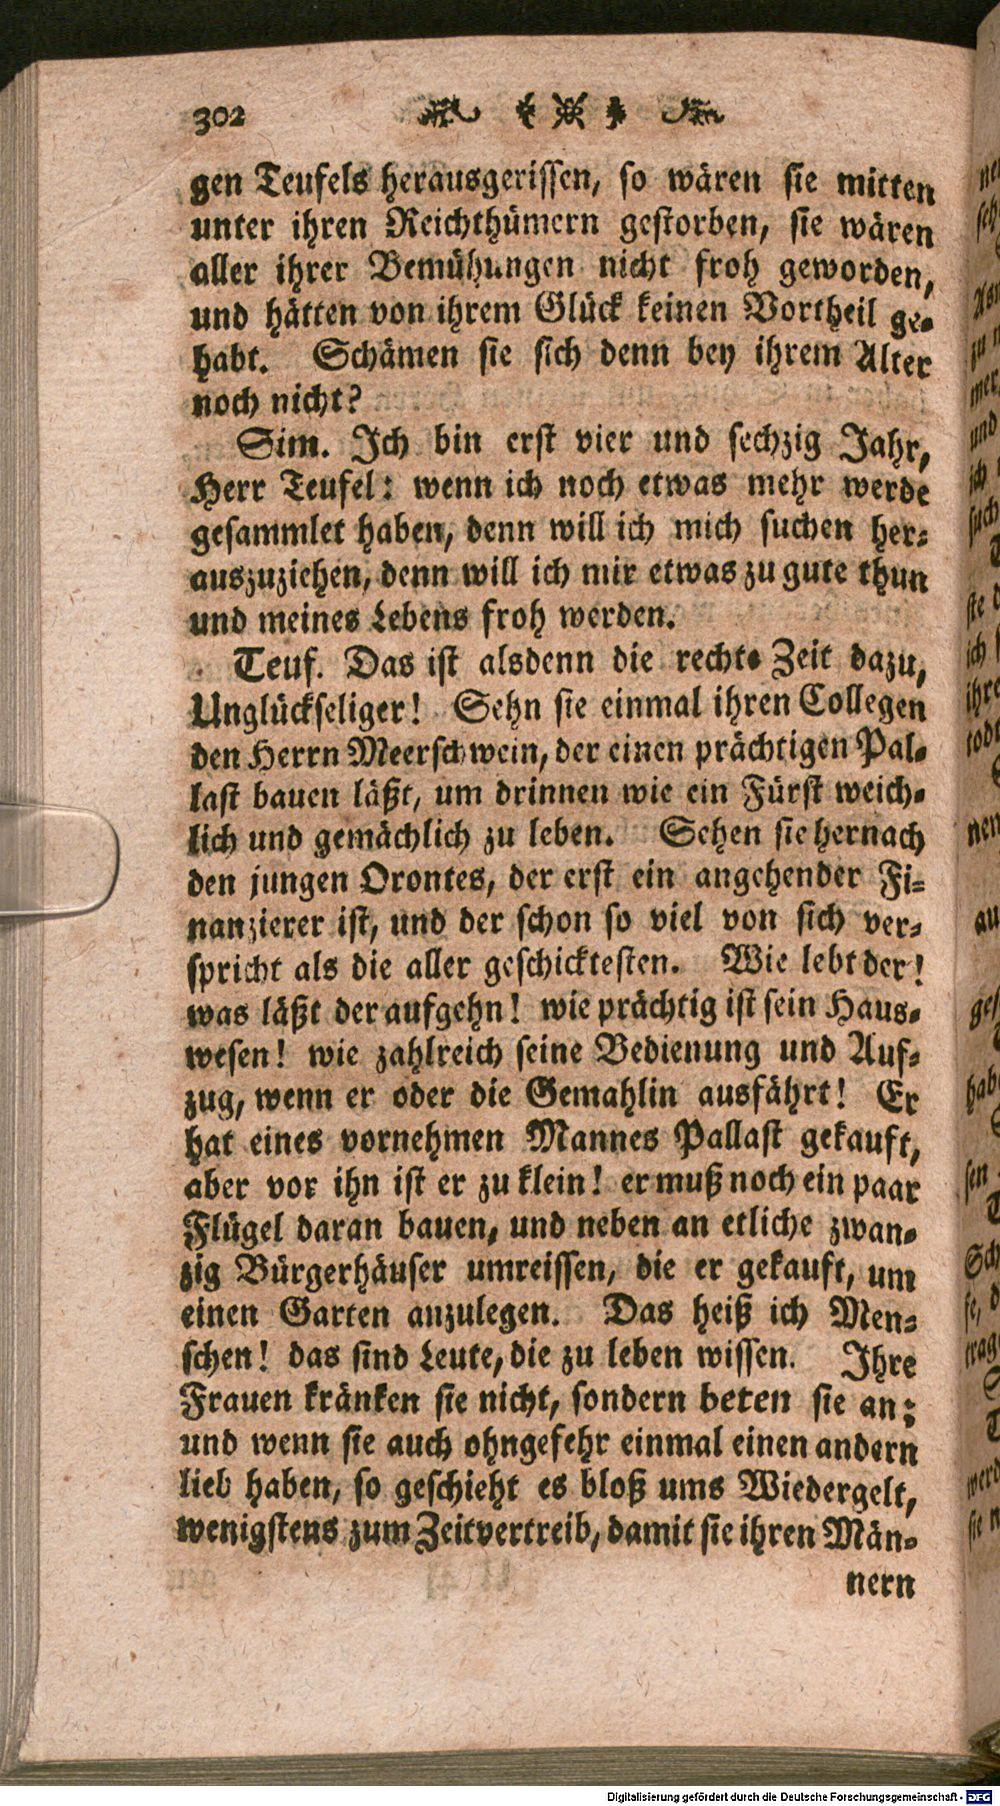 302
gen Teufels herausgerissen, so wären sie mitten
unter ihren Reichthümern gestorben, sie wären
aller ihrer Bemühungen nicht froh geworden,
und hätten von ihrem Glück keinen Vortheil ge-
habt. Schämen sie sich denn bey ihrem Alter
noch nicht?
Sim. Ich bin erst vier und sechzig Jahr,
Herr Teufel: wenn ich noch etwas mehr werde
gesammlet haben, denn will ich mich suchen her-
auszuziehen, denn will ich mir etwas zu gute thun
und meines Lebens froh werden.
Teuf. Das ist alsdenn die rechte Zeit dazu,
Unglückseliger! Sehn sie einmal ihren Collegen
den Herrn Meerschwein, der einen prächtigen Pal-
last bauen läßt, um drinnen wie ein Fürst weich-
lich und gemächlich zu leben. Sehen sie hernach
den jungen Orontes, der erst ein angehender Fi-
nanzierer ist, und der schon so viel von sich ver-
spricht als die aller geschicktesten. Wie lebt der!
was läßt der aufgehn! wie prächtig ist sein Haus-
wesen! wie zahlreich seine Bedienung und Auf-
zug, wenn er oder die Gemahlin ausfährt! Er
hat eines vornehmen Mannes Pallast gekauft,
aber vor ihn ist er zu klein! er muß noch ein paar
Flügel daran bauen, und neben an etliche zwan-
zig Bürgerhäuser umreissen, die er gekauft, um
einen Garten anzulegen. Das heiß ich Men-
schen! das sind Leute, die zu leben wissen. Ihre
Frauen kränken sie nicht, sondern beten sie an;
und wenn sie auch ohngefehr einmal einen andern
lieb haben, so geschieht es bloß ums Wiedergelt,
wenigstens zum Zeitvertreib, damit sie ihren Män-
nern
Digitalisierung gefördert durch die Deutsche Forschungsgemeinschaft - DFG